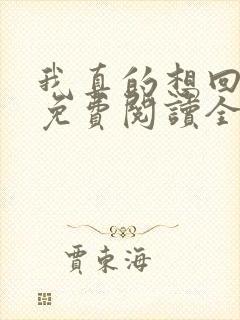 我真的想回
免費閱讀全
賈東海